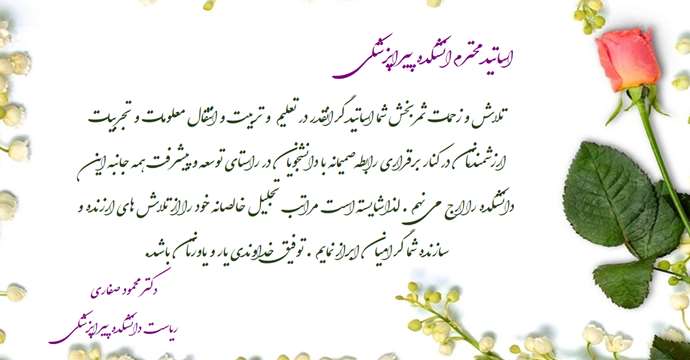 اساتید محترم دانشکده پیراپزشکی
تلاش و زحمت ثمربخش شما اساتید گرانقدر در تعلیم و تربیت و انتقال معلومات و تجربیات
ارزشمندتان در کنار برقراری رابطه صمیمانه با دانشجویان در راستای توسعه و پیشرفت همه جانبه این
دانشکده را ارج می نهم . لذا شایسته است مراتب تجلیل خالصانه خود را از تلاش های ارزنده و
سازنده شما گرامیان ابراز نمایم . توفیق خداوندی یار و یاورتان باشد.
دکتر محمود صفاری
ریاست دانشکده پیراپزشکی